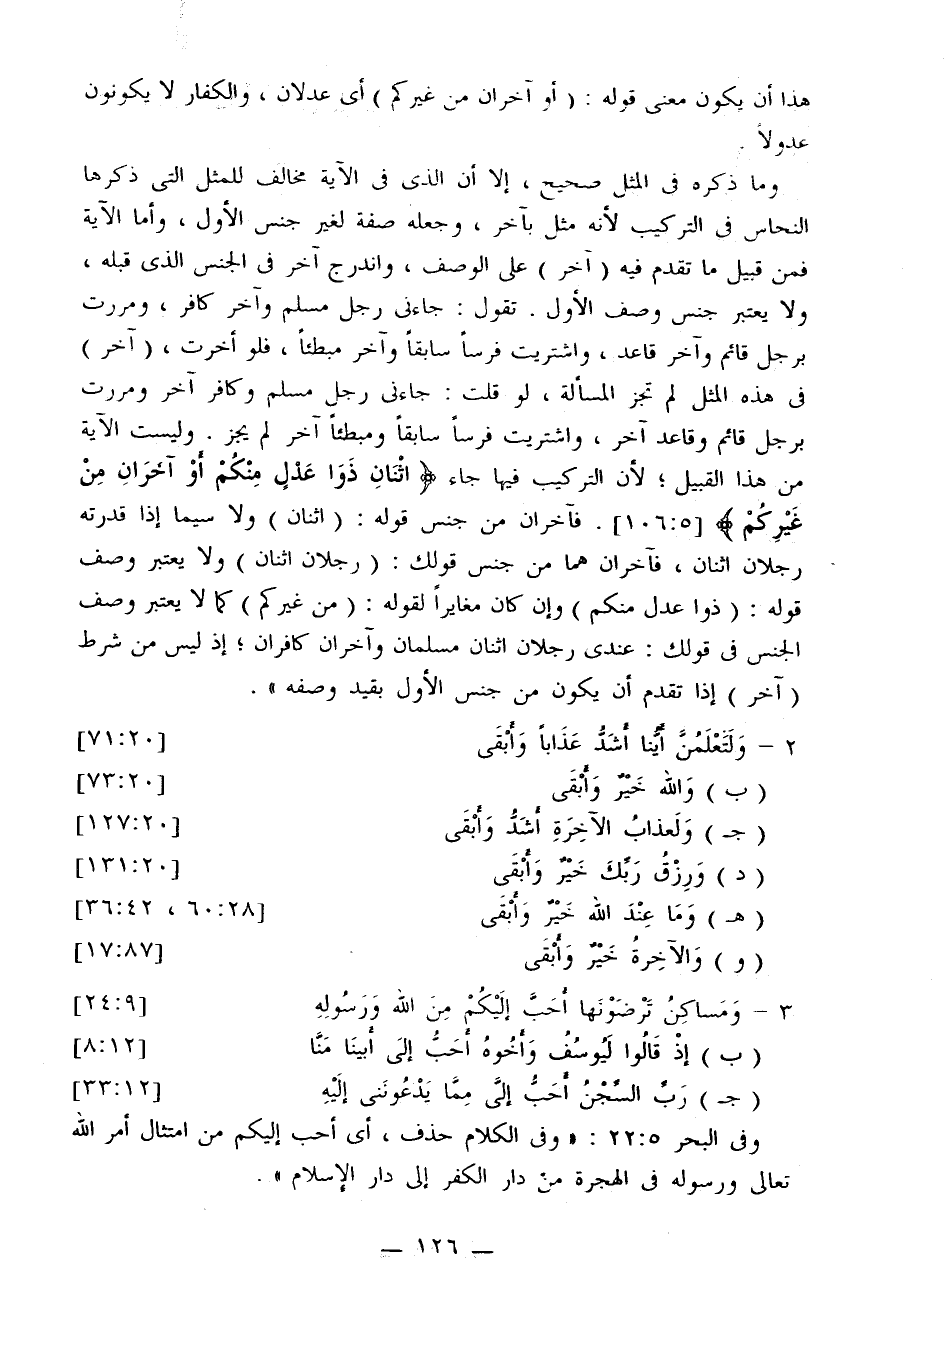 هذا أن يكون معنى قوله : ( أو آخران من غيركم ) أى عدلان ، والكفار لا يكونون
عدولاً .
وما ذكره فى المثل صحيح ، إلا أن الذى فى الآية مخالف للمثل التى ذكرها
النحاس فى التركيب لأنه مثل بآخر ، وجعله صفة لغير جنس الأول ، وأما الآية
فمن قبيل ما تقدم فيه ( آخر ) على الوصف ، واندرج آخر فى الجنس الذى قبله ،
ولا يعتبر جنس وصف الأول . تقول : جاءنى رجل مسلم وآخر كافر ، ومررت
برجل قائم وآخر قاعد ، واشتريت فرساً سابقاً وآخر مبطئاً ، فلو أخرت ، ( آخر )
فى هذه المثل لم تجز المسألة ، لو قلت : جاءنى رجل مسلم وكافر آخر ومررت
برجل قائم وقاعد آخر ، واشتريت فرساً سابقاً ومبطئاً آخر لم يجز . وليست الآية
من هذا القبيل ؛ لأن التركيب فيها جاء ﴿ اثْنَانِ ذَوَا عَدْلٍ مِنْكُمْ أَوْ آخَرَانِ مِنْ
غَيْرِكُمْ ﴾ [١٠٦:٥] . فآخران من جنس قوله : ( اثنان ) ولا سيما إذا قدرته
رجلان اثنان ، فآخران هما من جنس قولك : ( رجلان اثنان ) ولا يعتبر وصف
قوله : ( ذوا عدل منكم ) وإن كان مغايراً لقوله : ( من غيركم ) كما لا يعتبر وصف
الجنس فى قولك : عندى رجلان اثنان مسلمان وآخران كافران ؛ إذ ليس من شرط
( آخر ) إذا تقدم أن يكون من جنس الأول بقيد وصفه » .
٢ – وَلَتَعْلَمُنَّ أَيُّنا أَشَدُّ عَذَاباً وَأَبْقَى [٧١:٢٠]
( ب ) وَالله خَيْرٌ وَأَبْقَى [٧٣:٢٠]
( جـ ) وَلَعذابُ الآخِرَةِ أَشَدُّ وَأَبْقَى [١٢٧:٢٠]
( د ) وَرِزْقُ رَبِّكَ خَيْرٌ وَأَبْقَى [١٣١:٢٠]
( هـ ) وَمَا عِنْدَ الله خَيْرٌ وَأَبْقَى [٦٠:٢٨ ، ٣٦:٤٢]
( و ) وَالآخِرةُ خَيْرٌ وَأَبْقَى [١٧:٨٧]
٣ – وَمَساكِنُ تَرْضَوْنَها أَحَبَّ إِلَيْكُمْ مِنَ الله وَرَسُولِهِ [٢٤:٩]
( ب ) إِذْ قَالُوا لَيُوسُفُ وَأَخُوهُ أَحَبُّ إلَى أَبينَا مَنَّا [٨:١٢]
( جـ ) رَبِّ السِّجْنُ أَحَبُّ إلَىَّ مِمَّا يَدْعُونَنى إلَيْهِ [٣٣:١٢]
وفى البحر ٢٢:٥ : « وفى الكلام حذف ، أى أحب إليكم من امتثال أمر الله
تعالى ورسوله فى الهجرة من دار الكفر إلى دار الإسلام » .
— ١٢٦ —